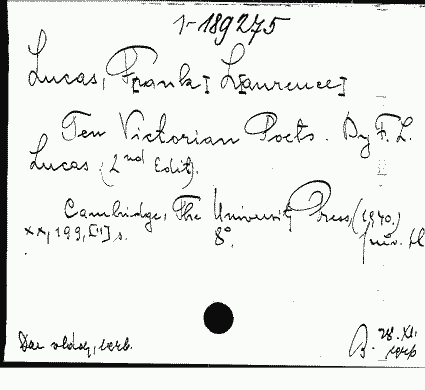 1-189275
Lucas, F[rank] L[aurence]
Ten Victorian Poets. By F. L.
Lucas (2nd Edit).
Cambridge, The University Press, (1940.)
XX, 199, [1] s. 8°.
B. 28. XI.